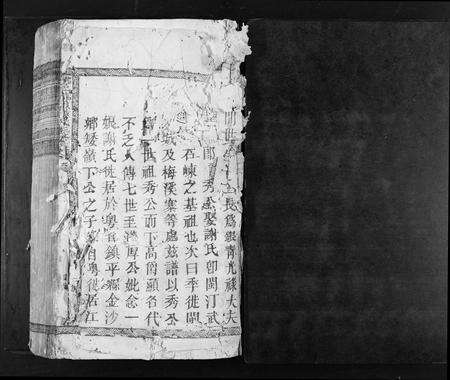 世 長爲銀青光祿大夫
郎 秀公娶謝氏卽閩汀武
石崠之基祖也次曰季徙閩
城及梅溪寨等處茲譜以秀公
世祖秀公而下高爵顯名代
不乏人傳七世至 公妣念一
娘謝氏徙居於粵省鎮平縣金沙
鄉矮嶺下公之子 自粵徙居江